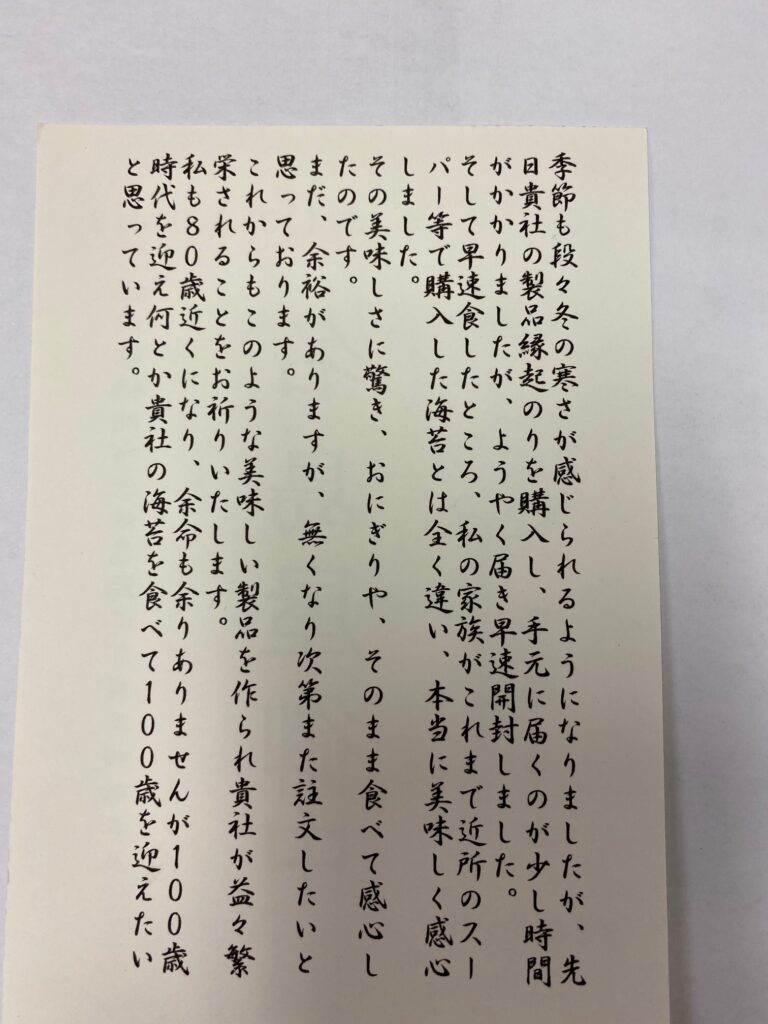 季節も段々冬の寒さが感じられるようになりましたが、先
日貴社の製品縁起のりを購入し、手元に届くのが少し時間
がかかりましたが、ようやく届き早速開封しました。
そして早速食したところ、私の家族がこれまで近所のスー
パー等で購入した海苔とは全く違い、本当に美味しく感心
しました。
その美味しさに驚き、おにぎりや、そのまま食べて感心し
たのです。
まだ、余裕がありますが、無くなり次第また註文したいと
思っております。
これからもこのような美味しい製品を作られ貴社が益々繁
栄されることをお祈りいたします。
私も80歳近くになり、余命も余りありませんが100歳
時代を迎え何とか貴社の海苔を食べて100歳を迎えたい
と思っています。